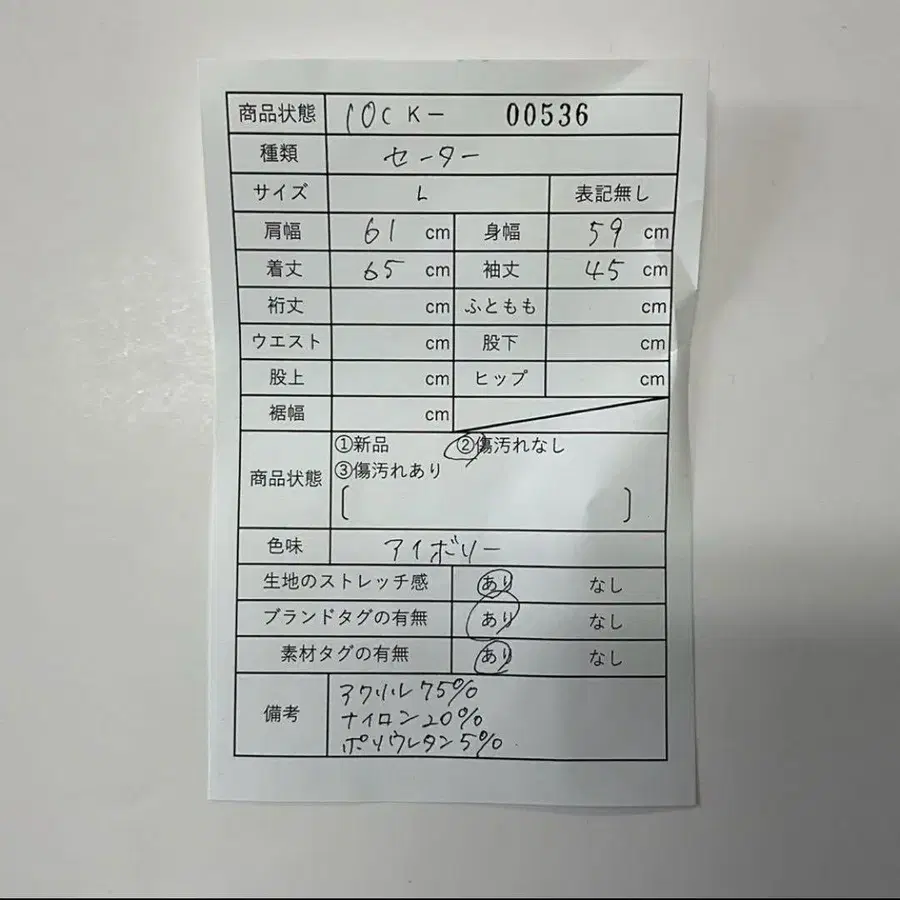 商品状態 10C K- 00536
種類 セーター
サイズ L 表記無し
肩幅 61 cm 身幅 59 cm
着丈 65 cm 袖丈 45 cm
裄丈 cm ふともも cm
ウエスト cm 股下 cm
股上 cm ヒップ cm
裾幅 cm
商品状態 ①新品 ②傷汚れなし
③傷汚れあり
[ ]
色味 アイボリー
生地のストレッチ感 あり なし
ブランドタグの有無 あり なし
素材タグの有無 あり なし
備考 アクリル75%
ナイロン20%
ポリウレタン5%